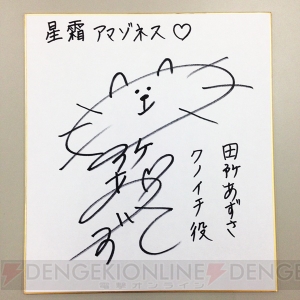 星霜 アマゾネス♡
田所あずさ
クノイチ役
DENGEKIONLINE
電撃オンライン